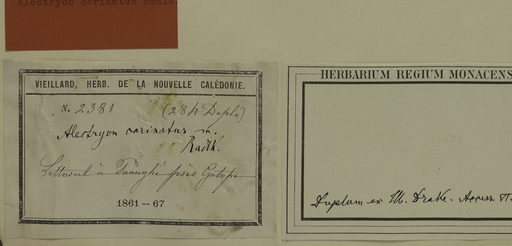 Alectryon carinatus Radlk.
VIEILLARD, HERB. DE LA NOUVELLE CALÉDONIE.
N. 2381 (284 Depl.)
Alectryon carinatus m.
Radlk.
Littoral à
1861 — 67
HERBARIUM REGIUM MONACENS
Duplum ex M. Drake. Access. VI